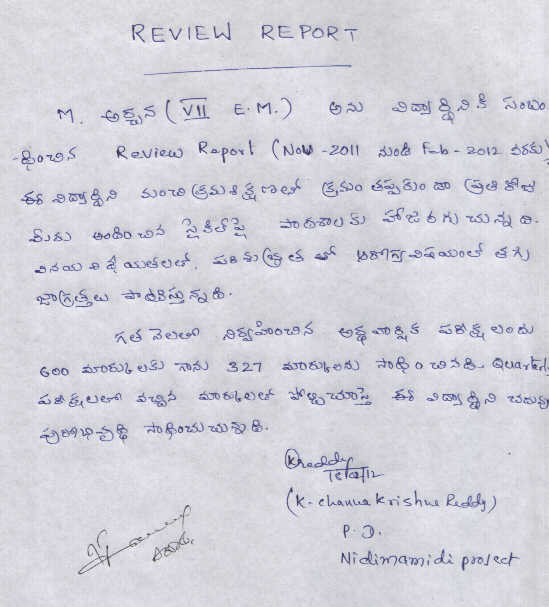 REVIEW REPORT
M. అర్చన (VII E.M.) అను విద్యార్థినికి సంబం
-ధించిన Review Report (Nov-2011 నుండి Feb-2012 వరకు)
ఈ విద్యార్థిని మంచి క్రమశిక్షణతో క్రమం తప్పకుండా ప్రతిరోజు
మీరు అందించిన సైకిల్‌పై పాఠశాలకు హాజరగుచున్నది.
వినయ విధేయతలతో, పరిశుభ్రతతో ఆరోగ్యవిషయంలో తగు
జాగ్రత్తలు పాటిస్తున్నది.
గత నెలలో నిర్వహించిన అర్ధవార్షిక పరీక్షలందు
600 మార్కులకు గాను 327 మార్కులను సాధించినది. Quarterly
పరీక్షలలో వచ్చిన మార్కులతో పోల్చిచూస్తే ఈ విద్యార్థిని చదువు
పురోభివృద్ధి సాధించుచున్నది.
KReddy
(K. Channa Krishna Reddy)
P.D.
Nidimamidi project